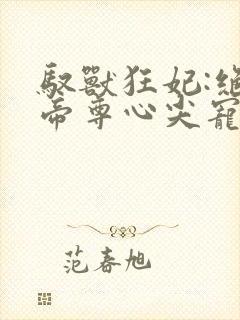 馭獸狂妃:絕
帝尊心尖寵
范春旭